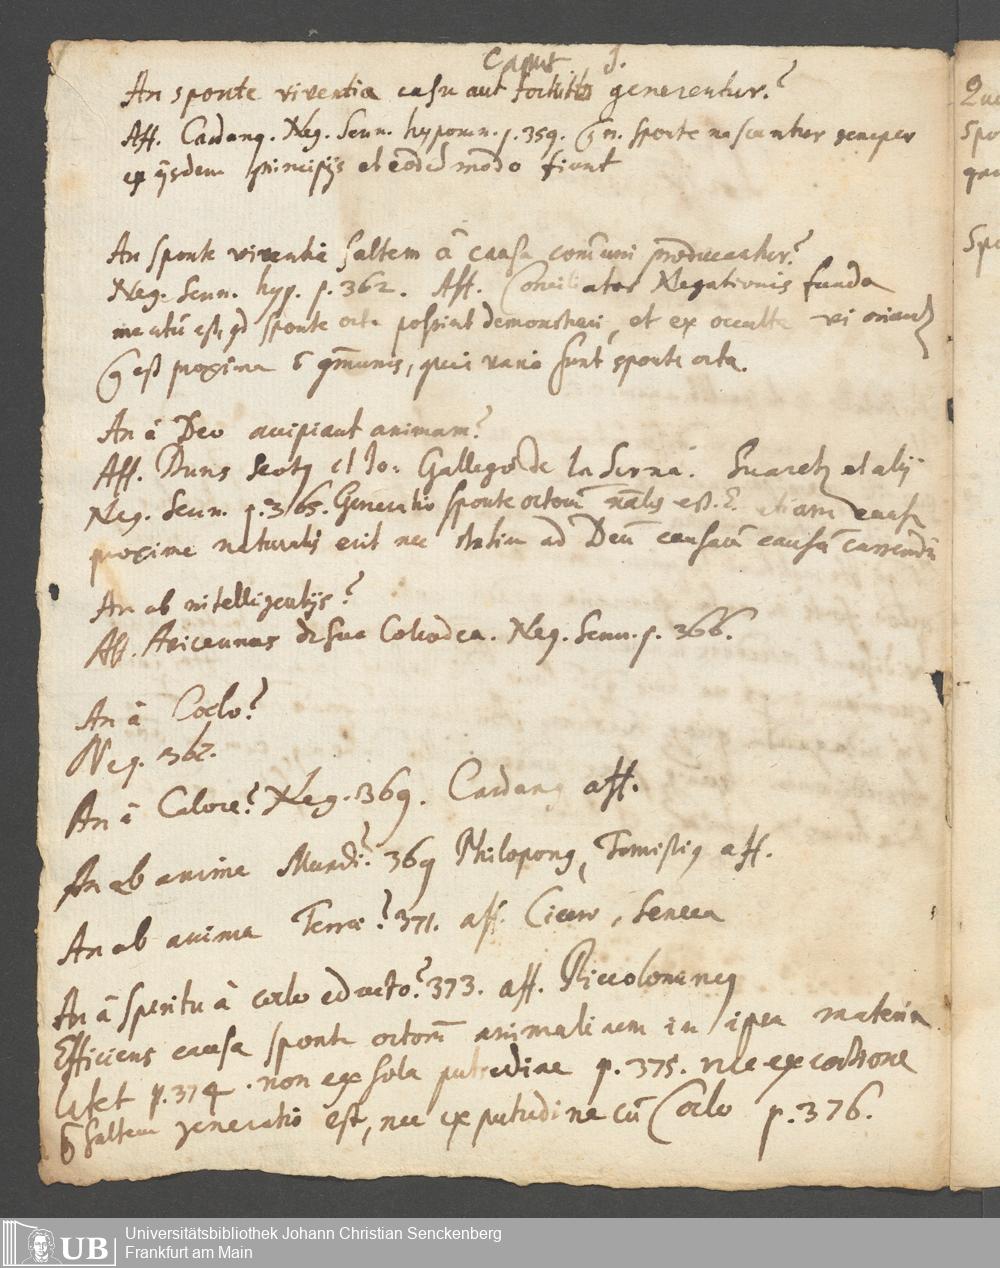 Caput J.
An sponte viventia casu aut fortuito generentur?
Aff. Cardang. Neg. Senn. hypomn. p. 359. sponte nascuntur semper
ex ijsdem principijs et eodē modo fiunt
An sponte viventia saltem â causa com̄uni producantur?
Neg. Senn. hyp. p. 362. Aff. Conciliator Negationis funda
mentū est, qd sponte orta possint demonstrari, et ex occulta vi
est proxima qm̄unis, quia varia sunt sponte orta.
An â Deo accipiant animam?
Aff. Duns Scotg et Jo: Gallegos de la Serna. Suaretz et alij
Neg. Senn. p. 365. Generatio sponte ortorū nālis est. E. etiam causa
proxime naturalis erit nec statim ad Deū causarū causā currendū
An ab intelligentijs?
Aff. Avicennas de sua Colcodea. Neg. Senn. p. 366.
An â Coelo?
Neg. 367.
An â Calore? Neg. 369. Cardang aff.
An ab anima Mundi? 369 Philopong, Temistig aff.
An ab anima Terræ? 371. aff. Cicero, Seneca
An â spiritu â coelo educto? 373. aff. Piccolomineg
Efficiens causa sponte ortorū animalium in ipsa materia
latet p. 374. non ex sola putredine p. 375. nec ex calore
saltem generatio est, nec ex putridine cū Coelo p. 376.
Que
Spo
Universitätsbibliothek Johann Christian Senckenberg
Frankfurt am Main
UB